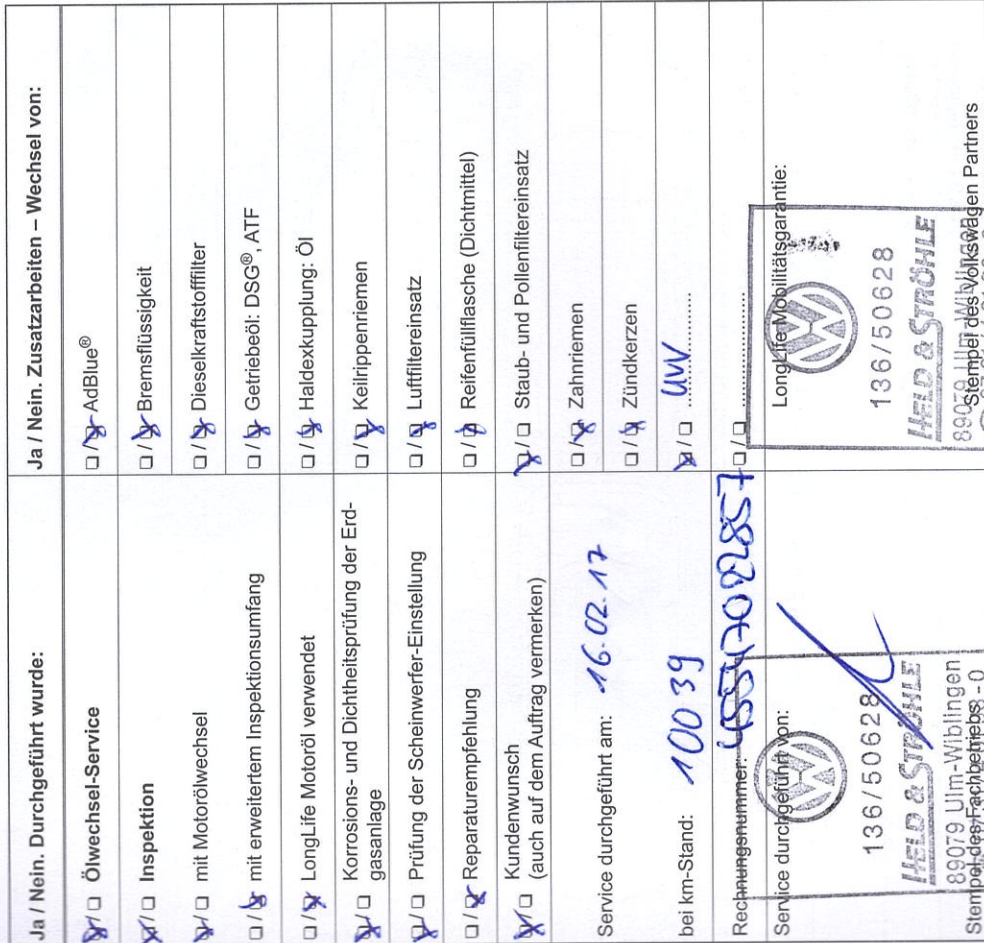 Ja / Nein. Durchgeführt wurde:
☒ / ☐ Ölwechsel-Service
☒ / ☐ Inspektion
☒ / ☐ mit Motorölwechsel
☐ / ☒ mit erweitertem Inspektionsumfang
☐ / ☒ LongLife Motoröl verwendet
☒ / ☐ Korrosions- und Dichtheitsprüfung der Erd-
gasanlage
☒ / ☐ Prüfung der Scheinwerfer-Einstellung
☐ / ☒ Reparaturempfehlung
☒ / ☐ Kundenwunsch
(auch auf dem Auftrag vermerken)
Service durchgeführt am: 16.02.17
bei km-Stand: 100 39
Rechnungsnummer:
Service durchgeführt von:
136/50628
HELD & STRÖHLE
89079 Ulm-Wiblingen
Stempel des Fachbetriebs
Ja / Nein. Zusatzarbeiten – Wechsel von:
☐ / ☒ AdBlue®
☐ / ☒ Bremsflüssigkeit
☐ / ☒ Dieselkraftstofffilter
☐ / ☒ Getriebeöl: DSG®, ATF
☐ / ☒ Haldexkupplung: Öl
☐ / ☒ Keilrippenriemen
☐ / ☒ Luftfiltereinsatz
☐ / ☒ Reifenfüllflasche (Dichtmittel)
☒ / ☐ Staub- und Pollenfiltereinsatz
☐ / ☒ Zahnriemen
☐ / ☒ Zündkerzen
☒ / ☐ UVV
☐ / ☐ ....................
LongLife Mobilitätsgarantie:
136/50628
HELD & STRÖHLE
89079 Ulm-Wiblingen
Stempel des Volkswagen Partners